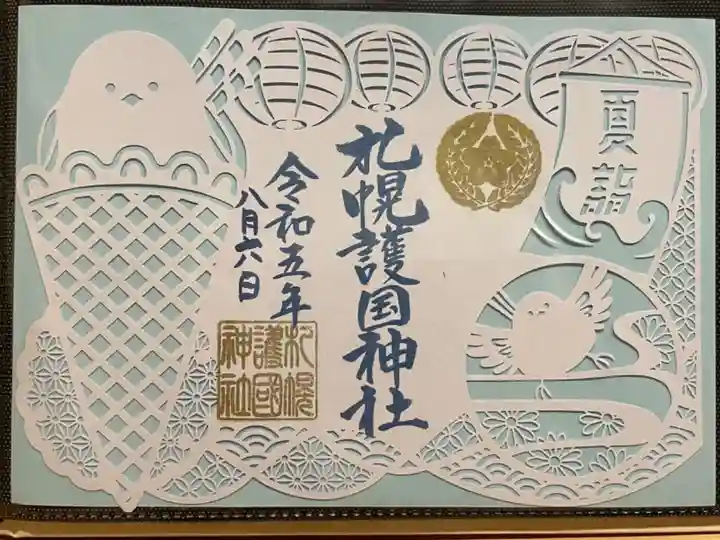 夏詣
札幌護国神社
令和五年
八月六日
札幌
護國
神社